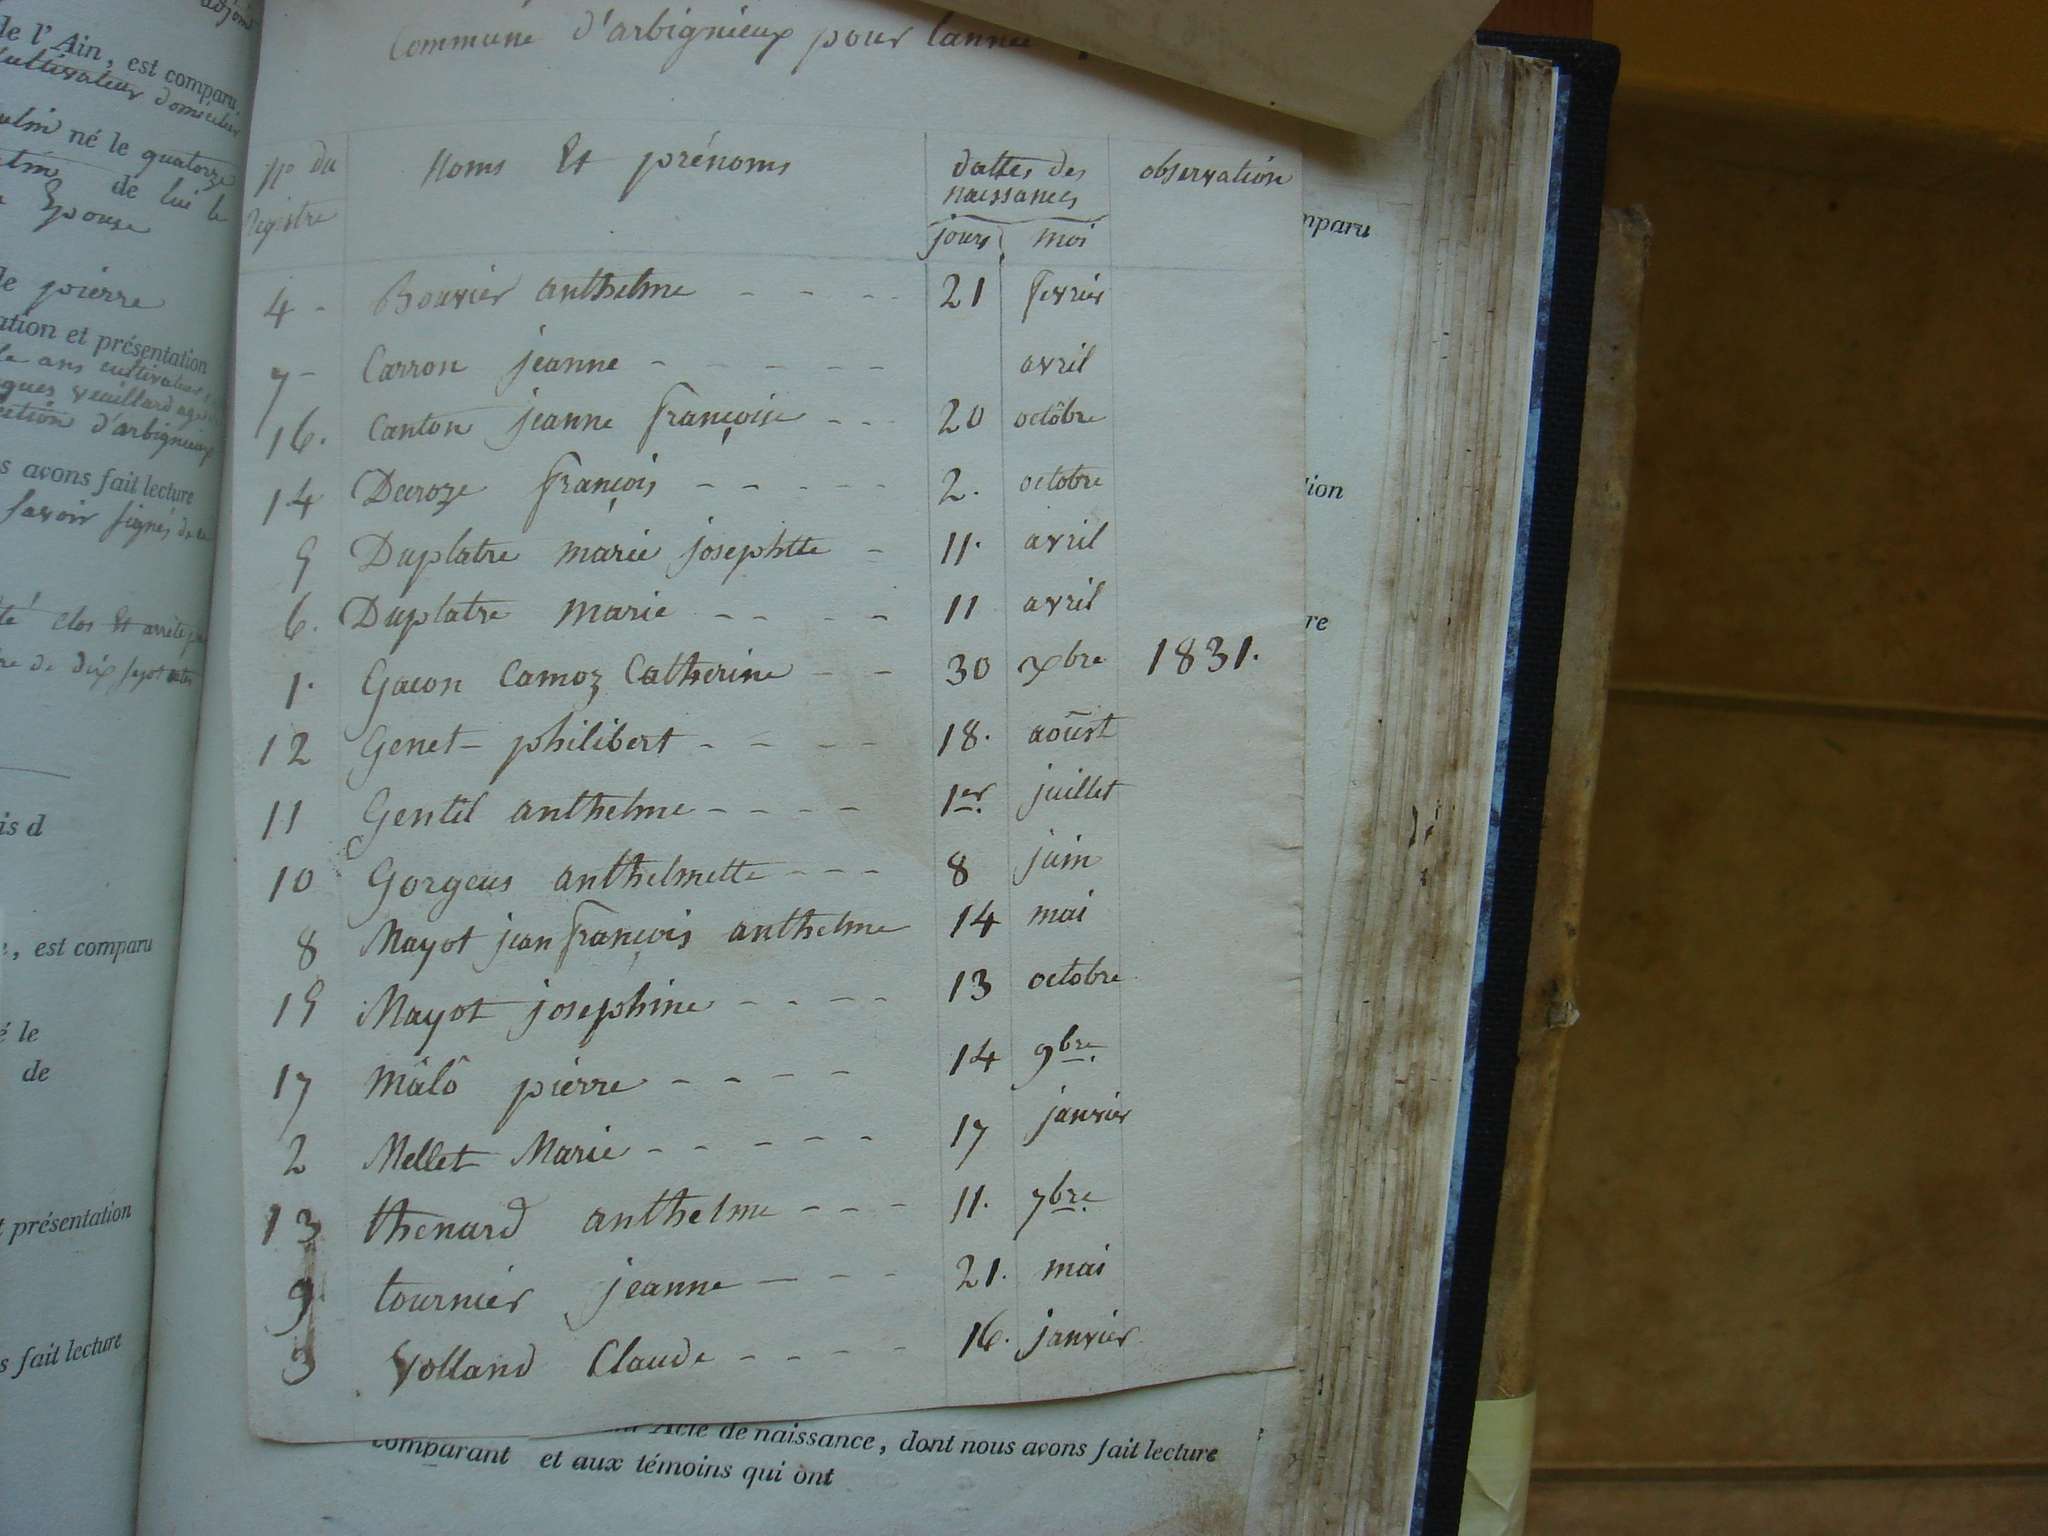 adjoint
de l'Ain, est comparu
cultivateur domicilié
né le quatorze
de lui le
Epouse
de pierre
ation et présentation
ans cultivateur
veuillard agé
section d'arbignieux
s avons fait lecture
savoir signés de ce
clos Et arrêté
de dix sept actes
is d
e, est comparu
é le
de
t présentation
s fait lecture
Commune d'arbignieux pour lannée
No du Registre Noms Et prénoms dattes des naissances observation
jours moi
4 - Bouvier anthelme - - - - 21 fevrier
7 - Carron jeanne - - - - - - avril
16. Canton jeanne françoise - - - 20 octôbre
14 Deroze françois - - - - - 2. octobre
5 Duplatre marie josephtte - 11. avril
6. Duplatre marie - - - - 11 avril
1. Gacon Camoz Catherine - - 30 xbre 1831.
12 Genet - philibert - - - - 18. aoûst
11 Gentil anthelme - - - - 1er juillet
10 Gorgeus anthelmette - - - 8 juin
8 Mayot jean françois anthelme 14 mai
15 Mayot josephine - - - - 13 octobre
17 Mâlô pierre - - - - 14 9bre.
2 Mellet Marie - - - - - 17 janvier
13 thenard anthelme - - - 11. 7bre.
9 tournier jeanne - - - 21. mai
3 Volland Claude - - - - 16. janvier
mparu
tion
re
Acte de naissance, dont nous avons fait lecture
comparant et aux témoins qui ont